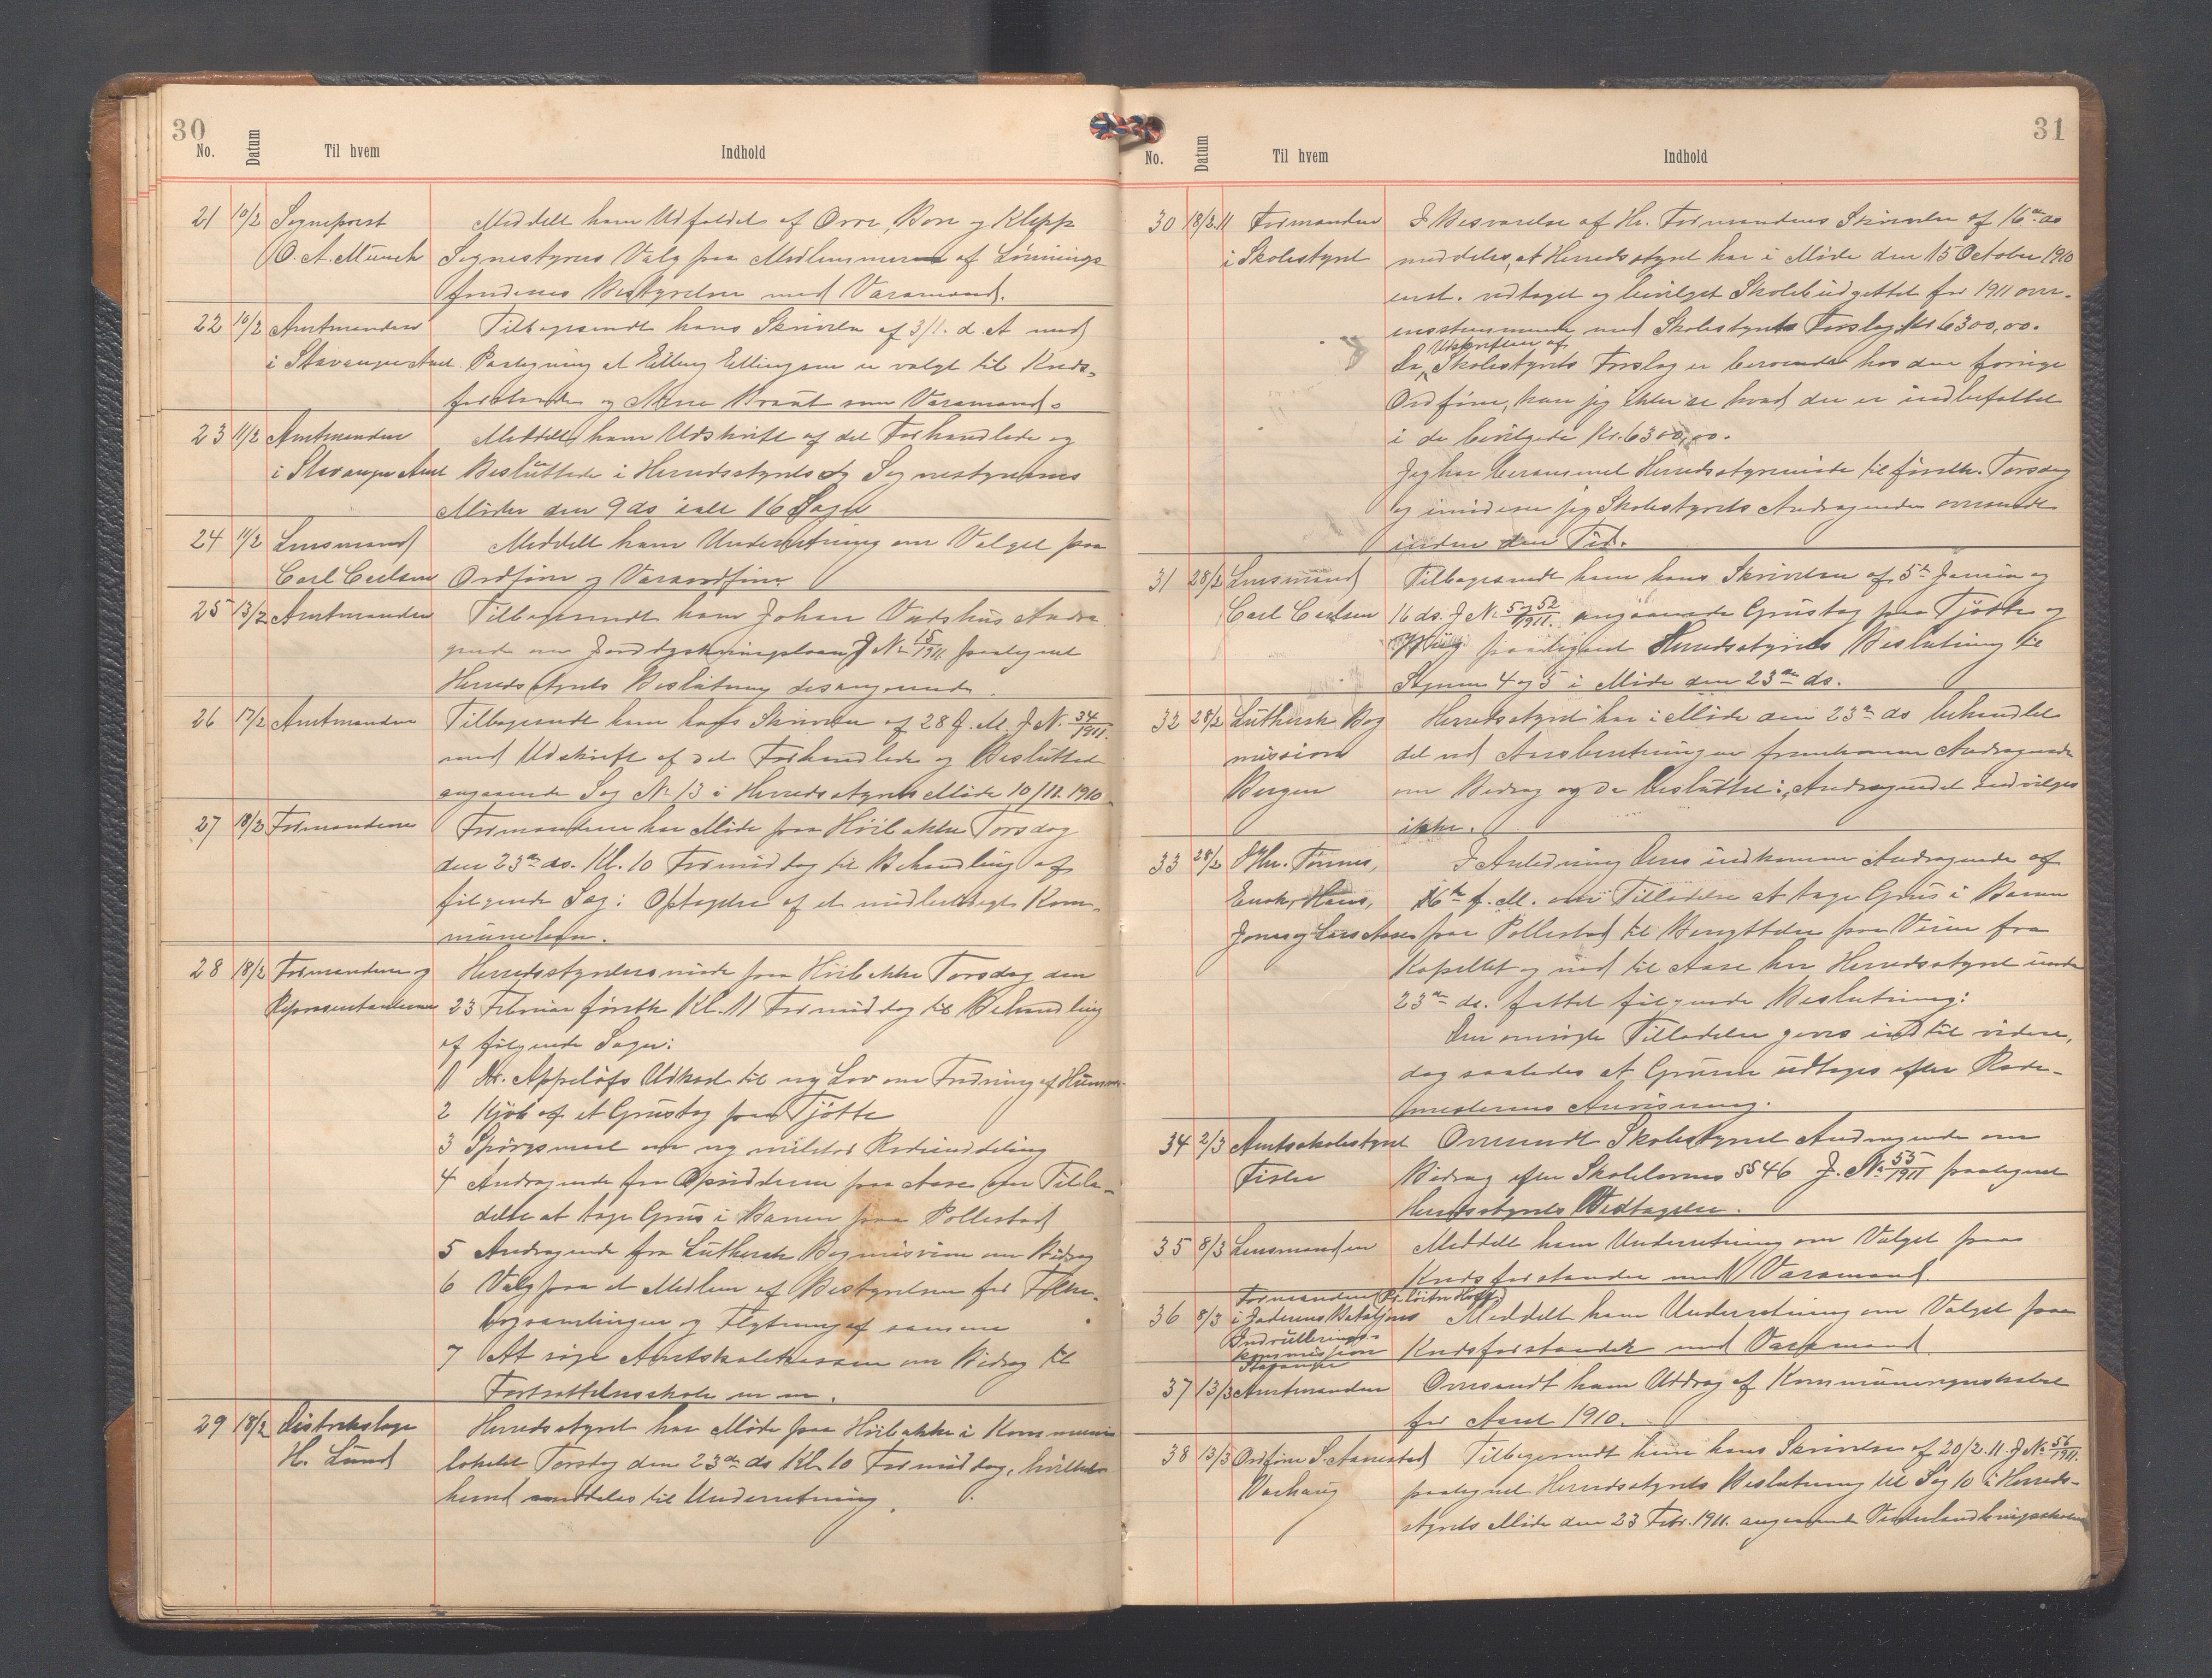 30
No. Datum Til hvem Indhold
21 10/2 Sogneprest Meddelt ham Udfaldet af Orre, Bore og Klepp
O. A. Münch Sognestyres Valg paa Medlemmerne af Lønnings
fondenes Bestyrelse med Varamænd.
22 10/2 Amtmanden Tilbagesendt hans Skrivelse af 3/1. d. A med
i Stavanger Amt Paategning at Elling Ellingsen er valgt til Kreds-
forstander og Arne Braut som Varamand.
23 11/2 Amtmanden Meddelt ham Udskrift af det Forhandlede og
i Stavanger Amt Besluttede i Herredsstyrets og Sognestyrernes
Møder den 9 ds ialt 16 Sager
24 11/2 Lensmand Meddelt ham Underretning om Valget paa
Carl Carlsen Ordfører og Varaordfører
25 13/2 Amtmanden Tilbagesendt ham Johan Vadshus Andra
gende om Jorddyrkningslaan J N 15/1911 paategnet
Herredsstyrets Beslutning desangaaende.
26 17/2 Amtmanden Tilbagesendt ham hans Skrivelse af 28 f. M. J N. 34/1911.
med Udskrift af det Forhandlede og Besluttede
angaaende Sag No 13 i Herredsstyrets Møde 10/11. 1910.
27 18/2 Formændene Formændene har Møde paa Hvilebakke Torsdag
den 23de ds. Kl. 10 Formiddag til Behandling af
følgende Sag: Optagelse af et midlertidigt Kom-
munelaan.
28 18/2 Formændene og Herredsstyrelsesmøde paa Hvilebakke Torsdag den
Repræsentanterne 23 Februar førstk Kl. 11 Formiddag til Behandling
af følgende Sager:
1 Dr. Appeløfs Udkast til ny Lov om Fredning af Hummer
2 Kjøb af et Grustag paa Tjøtte
3 Spørgsmaal om ny militær Rodeinddeling
4 Andragende fra Opsidderne paa Aase om Tilla-
delse at tage Grus i Banen paa Pollestad
5 Andragende fra Luthersk Bogmission om Bidrag
6 Valg paa et Medlem af Bestyrelsen for Folke-
bogsamlingen og Flytning af samme
7 At søge Amtsskolekassen om Bidrag til
Fortsættelsesskole m m.
29 18/2 Distriktslæge Herredsstyret har Møde paa Hvilebakke i Kommune
H. Lund lokalet Torsdag den 23de ds Kl 10 Formiddag, hvilket
herved meddeles til Underretning.
31
No. Datum Til hvem Indhold
30 18/2.11 Formanden I Besvarelse af Hr. Formandens Skrivelse af 16de ds
i Skolestyret meddeles, at Herredsstyret har i Møde den 15 October 1910
enst. vedtaget og bevilget Skolebudgettet for 1911 over-
ensstemmende med Skolestyrets Forslag Kr 6300,00.
Udskriften af
Da Skolestyrets Forslag er beroende hos den forrige
Ordfører, kan jeg ikke se hvad der er indbefattet
i de bevilgede Kr. 6300,00.
Jeg har berammet Herredsstyremøde til førstk. Torsdag
og imødeser jeg Skolestyrets Andragender oversendt
inden den Tid.
31 28/2 Lensmand Tilbagesendt ham hans Skrivelse af 5te Januar og
Carl Carlsen 16 ds. J N. 5 og 52/1911. angaaende Grustag paa Tjøtte og
paategnet Herredsstyrets Beslutning til
Sagerne 4 og 5 i Møde den 23de ds.
32 28/2 Luthersk Bog Herredsstyret har i Møde den 23de ds behandlet
mission det ved Aarsberetningen fremkomne Andragende
Bergen om Bidrag og da besluttet: Andragendet indvilges
ikke.
33 28/2 Hr. Tønnes, I Anledning Deres indkomne Andragende af
Enok, Hans, 16de f. M. om Tilladelse at tage Grus i Banen
Jonas og Lars Aase paa Pollestad til Benyttelse paa Veien fra
Kapellet og ned til Aase har Herredsstyret under
23de ds. fattet følgende Beslutning:
Den omsøgte Tilladelse gives indtil videre,
dog saaledes at Grusen udtages efter Rode-
mesterens Anvisning.
34 2/3 Amtsskolestyret Oversendt Skolestyret Andragende om
Bidrag efter Skolelovens §§ 46 J. No 55/1911 paategnet
Herredsstyrets Vedtagelse.
35 8/3 Lensmanden Meddelt ham Underretning om Valget paa
Kredsforstander med Varamand.
36 8/3 Formanden Pr. løitn Hoff
i Jæderens Bataljons Meddelt ham Underretning om Valget paa
Indrullerings-
kommission Kredsforstander med Varamand
Stavanger
37 13/3 Amtmanden Oversendt ham Uddrag af Kommuneregnskabet
for Aaret 1910.
38 13/3 Ordfører S. Aanestad Tilbagesendt ham hans Skrivelse af 20/2. 11. J No 56/1911.
Varhaug paategnet Herredsstyrets Beslutning til Sag 10 i Herreds-
styrets Møde den 23 Febr. 1911. angaaende